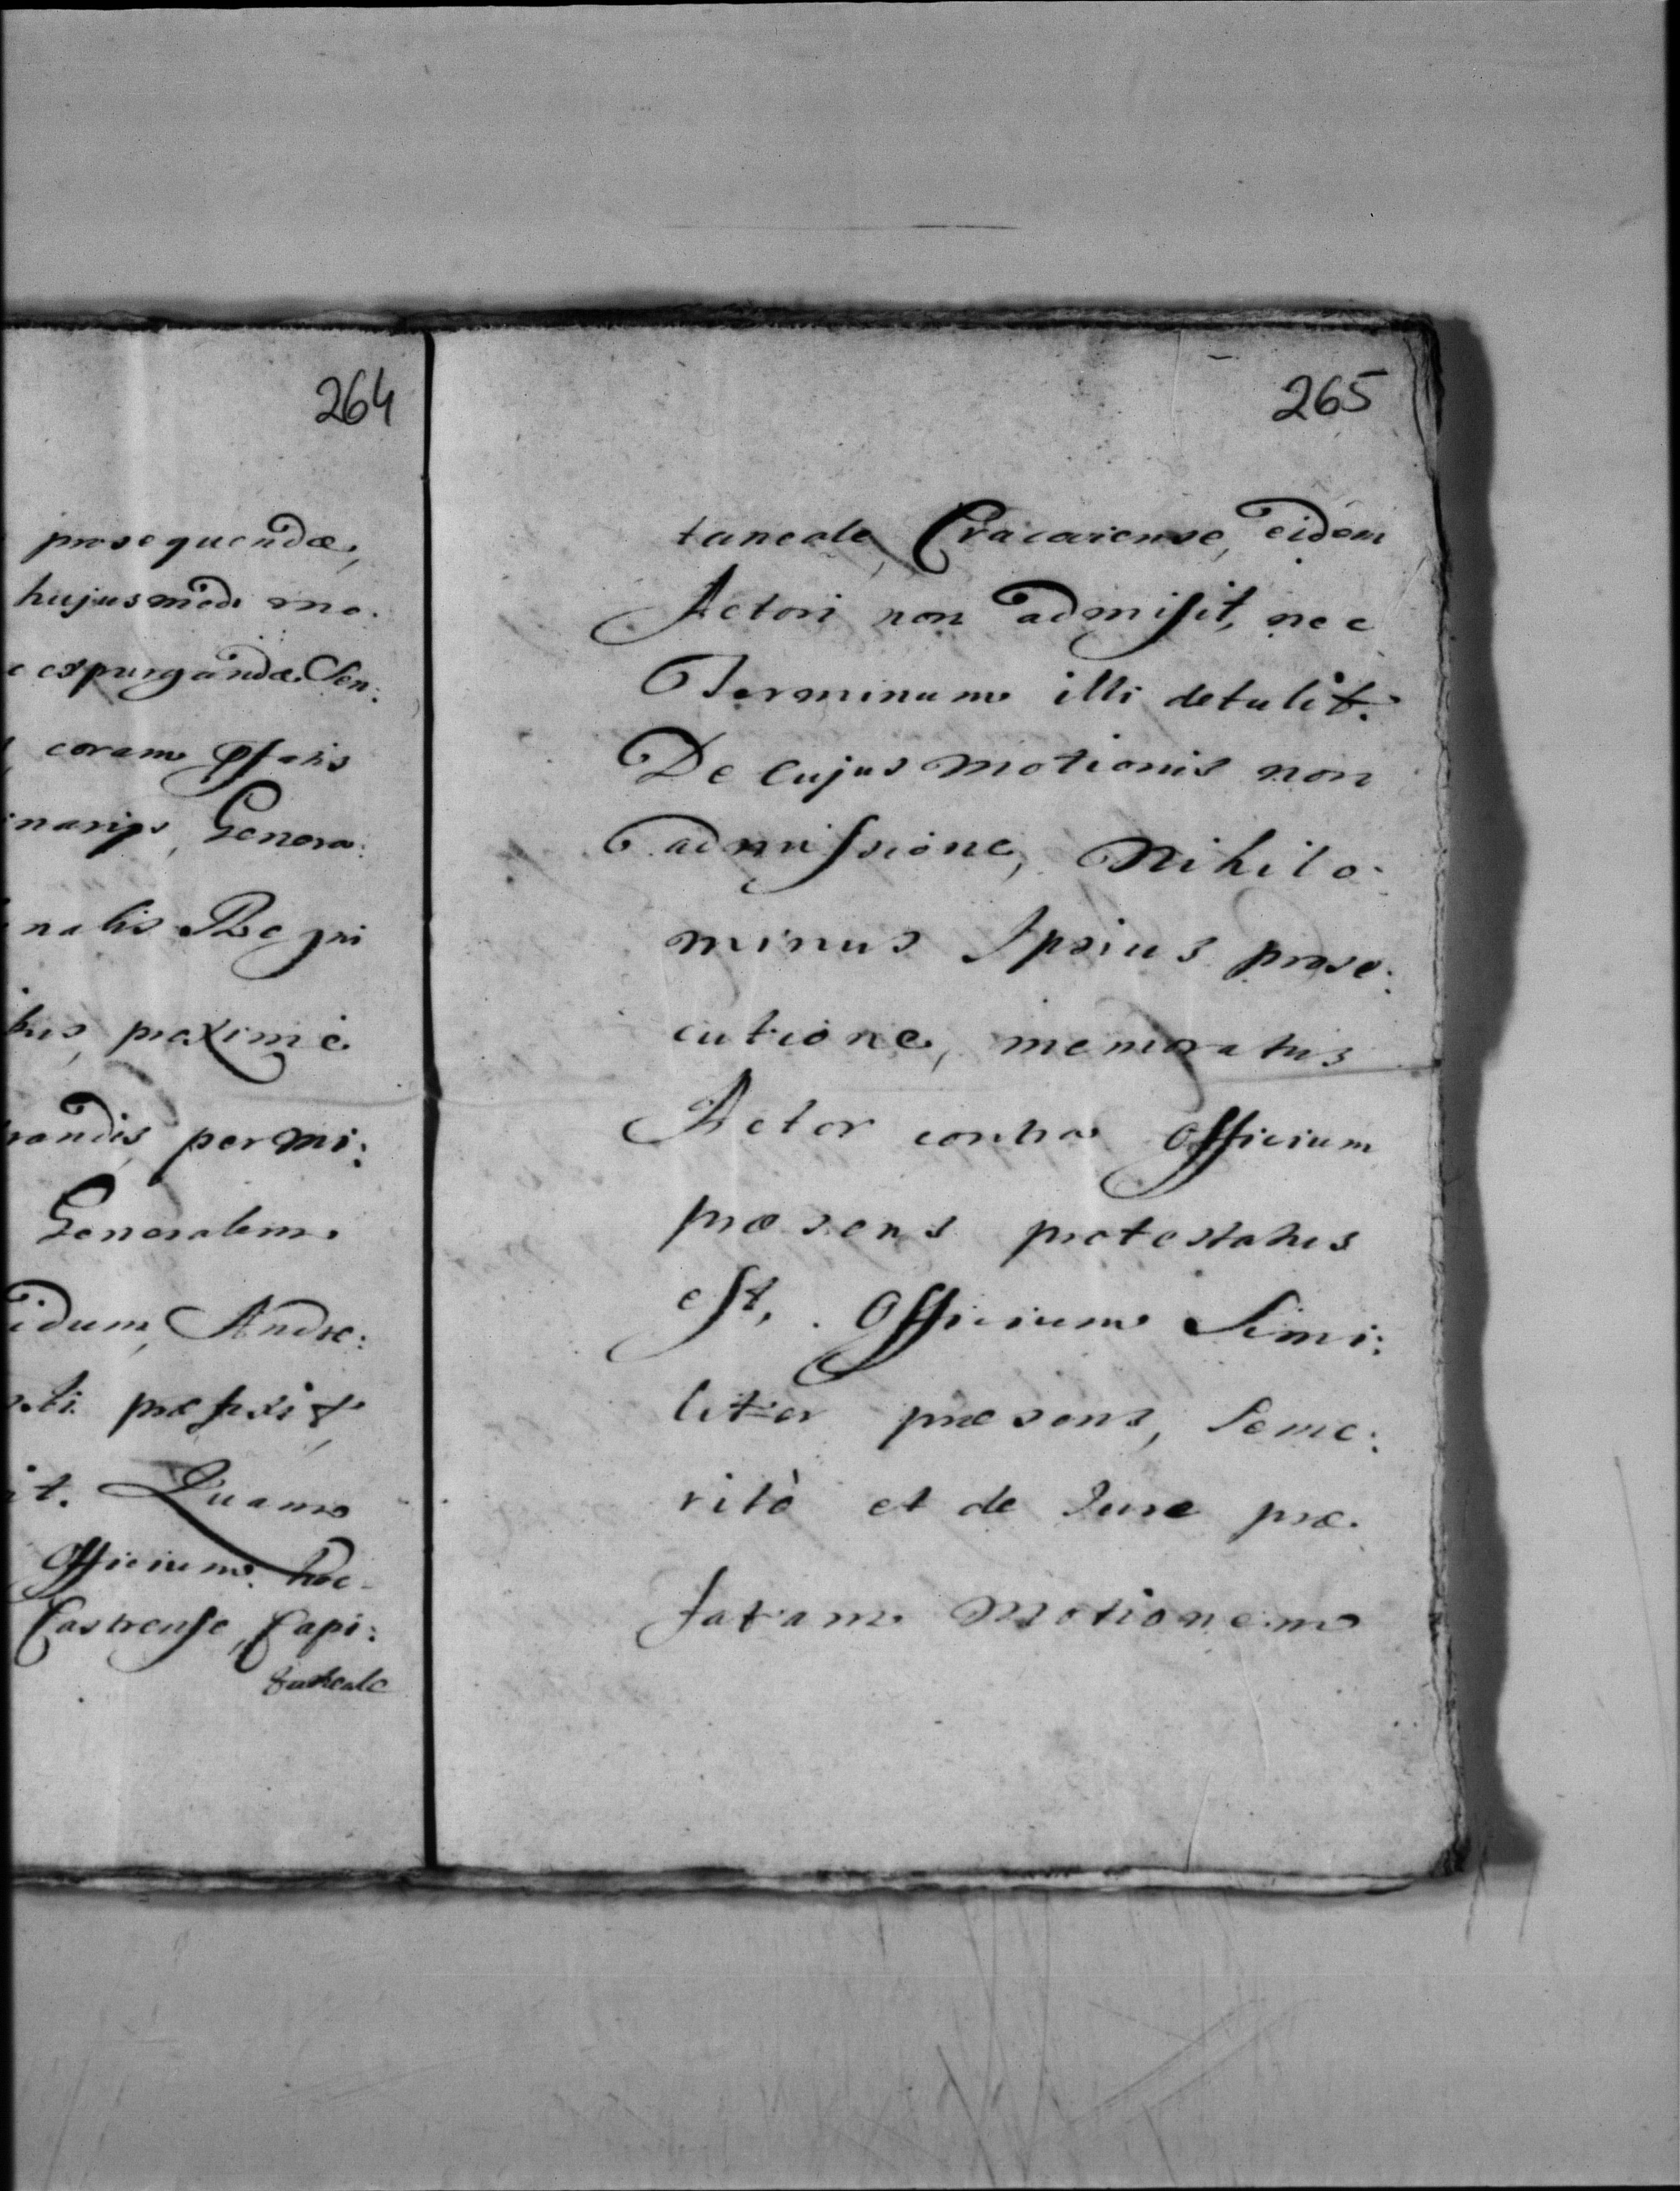 264
prosequendæ,
hujusmodi mo.
expurgandæ Sen:
coram
Genera:
nalis Regni
proximè
randis permi:
Generalem
idum, Andre:
præfixit,
it. Quam
Officium hoc
Castrense, Capi:
taneale
265
taneale, Cracoviense, eidem
Actori non admisit, nec
Terminum illi detulit.
De cujus motionis non
admissione, Nihilo.
minus Ipsius prose:
cutione, memoratus
Actor contra Officium
præsens protestatus
est. Officium Simi:
liter præsens, Seme:
ritò et de Jure præ.
fatam Motionem